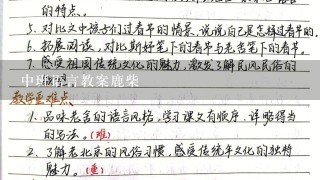 的特点。
5. 对比文中孩子们过春节的情景，说说自己是怎样过春节的。
6. 拓展阅读，对比斯好笔下的春节与老舍笔下的春节。
7. 感受祖国传统文化的魅力，激发了解民风民俗的
中班语言教案鹿柴
教学重难点
1. 品味老舍的语言风格，学习课文有顺序、详略得当
的写法。（难）
2. 了解老北京的风俗习惯，感受传统年文化的独特
魅力。（重）